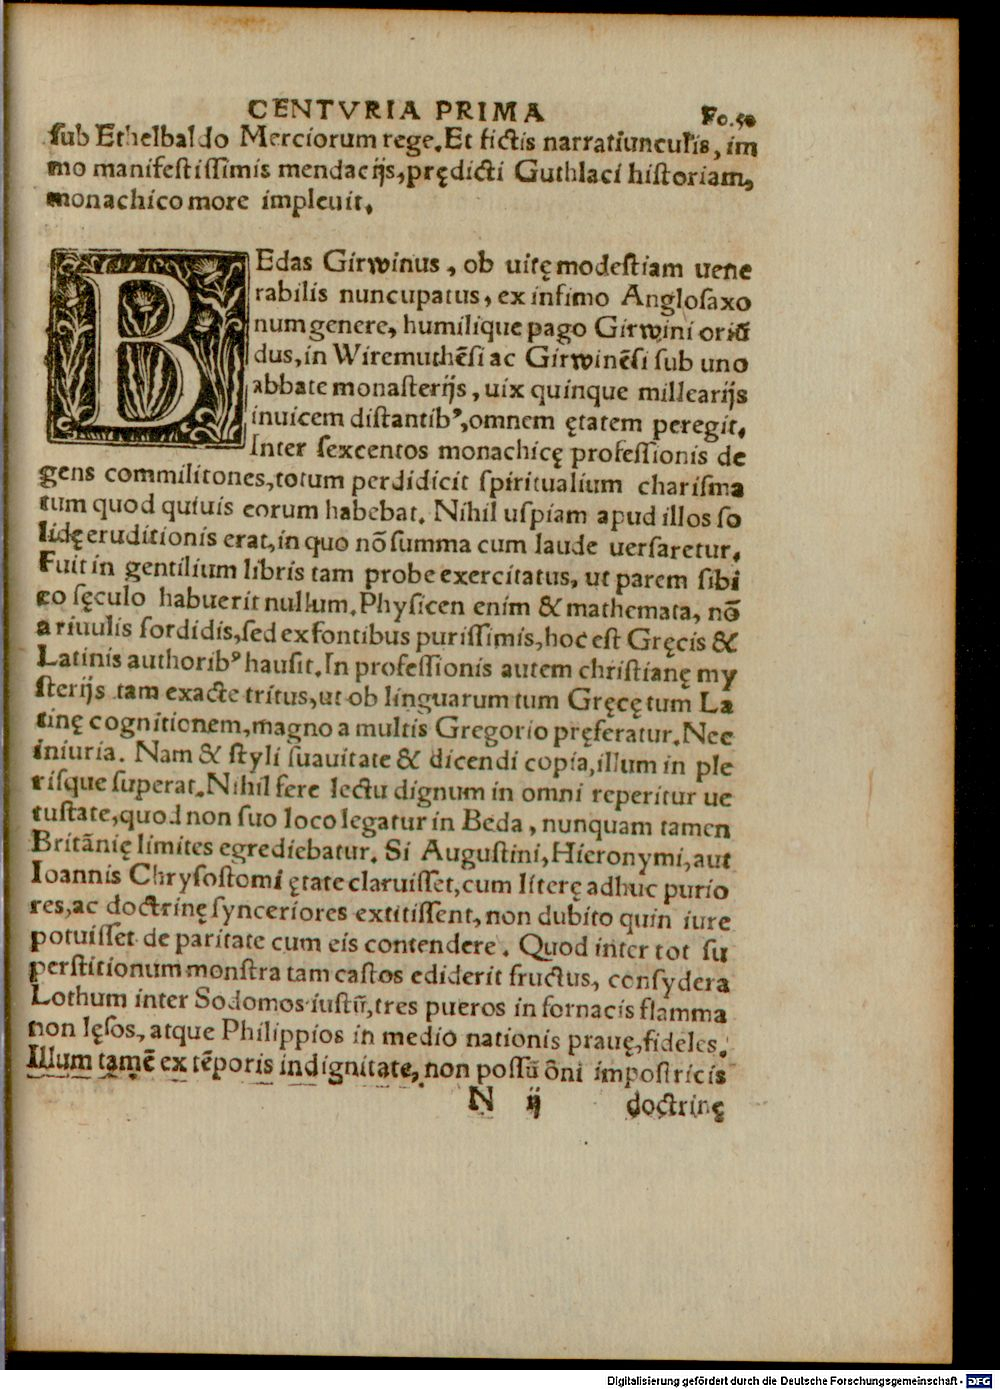 CENTVRIA PRIMA Fo. 50
ſub Ethelbaldo Merciorum rege. Et fictis narratiunculis, im
mo manifeſtiſſimis mendacijs, prędicti Guthlaci hiſtoriam,
monachico more impleuit.
BEdas Girwinus, ob uitę modeſtiam uene
rabilis nuncupatus, ex infimo Angloſaxo
num genere, humilique pago Girwini oriū
dus, in Wiremuthēſi ac Girwinēſi ſub uno
abbate monaſterijs, uix quinque millearijs
inuicem diſtantibꝰ, omnem ętatem peregit.
Inter ſexcentos monachicę profeſſionis de
gens commilitones, totum perdidicit ſpiritualium chariſma
tum quod quiuis eorum habebat. Nihil uſpiam apud illos ſo
lidę eruditionis erat, in quo nō ſumma cum laude uerſaretur.
Fuit in gentilium libris tam probe exercitatus, ut parem ſibi
eo ſęculo habuerit nullum. Phyſicen enim & mathemata, nō
a riuulis ſordidis, ſed ex fontibus puriſſimis, hoc eſt Gręcis &
Latinis authoribꝰ hauſit. In profeſſionis autem chriſtianę my
ſterijs tam exacte tritus, ut ob linguarum tum Gręcę tum La
tinę cognitionem, magno a multis Gregorio pręferatur. Nec
iniuria. Nam & ſtyli ſuauitate & dicendi copia, illum in ple
riſque ſuperat. Nihil fere lectu dignum in omni reperitur ue
tuſtate, quod non ſuo loco legatur in Beda, nunquam tamen
Britānię limites egrediebatur. Si Auguſtini, Hieronymi, aut
Ioannis Chryſoſtomi ętate claruiſſet, cum literę adhuc purio
res, ac doctrinę ſynceriores extitiſſent, non dubito quin iure
potuiſſet de paritate cum eis contendere. Quod inter tot ſu
perſtitionum monſtra tam caſtos ediderit fructus, conſydera
Lothum inter Sodomos iuſtū, tres pueros in fornacis flamma
non lęſos, atque Philippios in medio nationis prauę, fideles.
Illum tamē ex tēporis indignitate, non poſſū ōni impoſtricis
N ij doctrinę
Digitalisierung gefördert durch die Deutsche Forschungsgemeinschaft - DFG